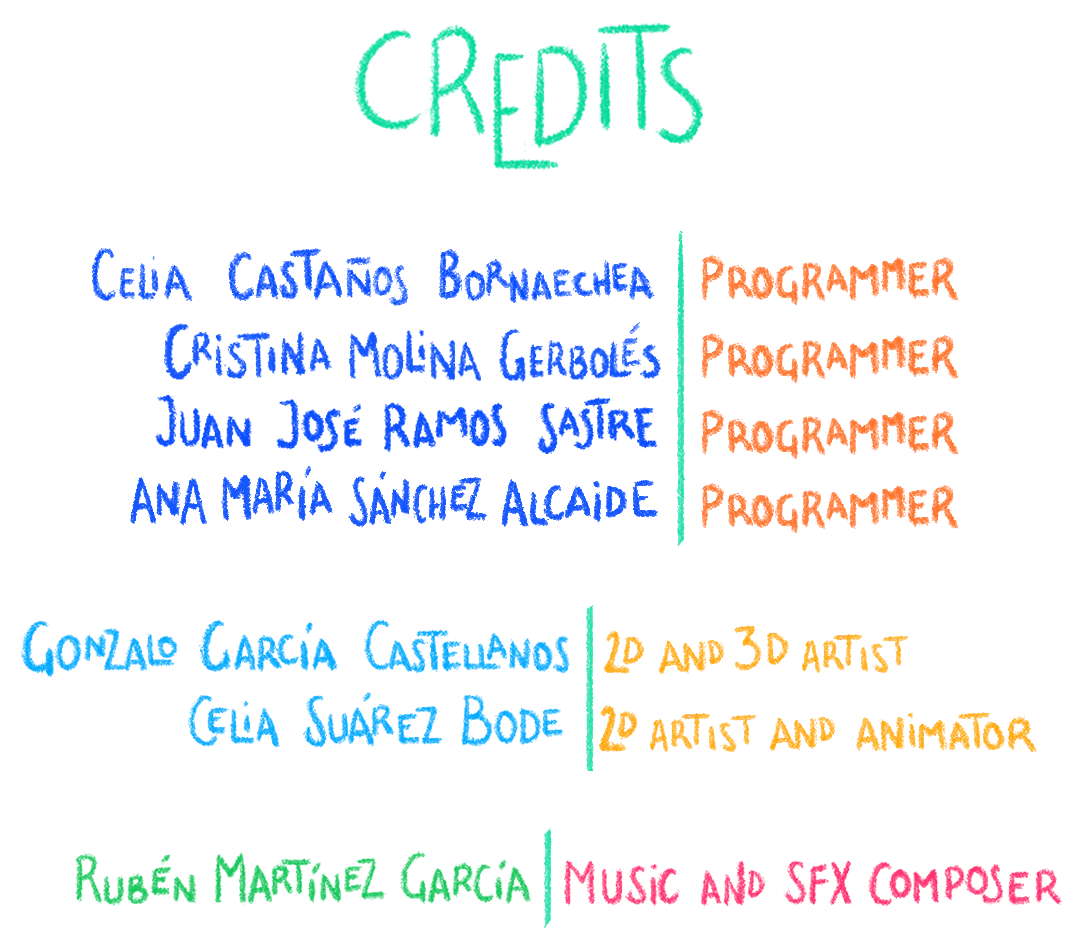 CREDITS
CELIA CASTAÑOS BORNAECHEA PROGRAMMER
CRISTINA MOLINA GERBOLÉS PROGRAMMER
JUAN JOSÉ RAMOS SASTRE PROGRAMMER
ANA MARÍA SÁNCHEZ ALCAIDE PROGRAMMER
GONZALO GARCÍA CASTELLANOS 2D AND 3D ARTIST
CELIA SUÁREZ BODE 2D ARTIST AND ANIMATOR
RUBÉN MARTÍNEZ GARCÍA MUSIC AND SFX COMPOSER